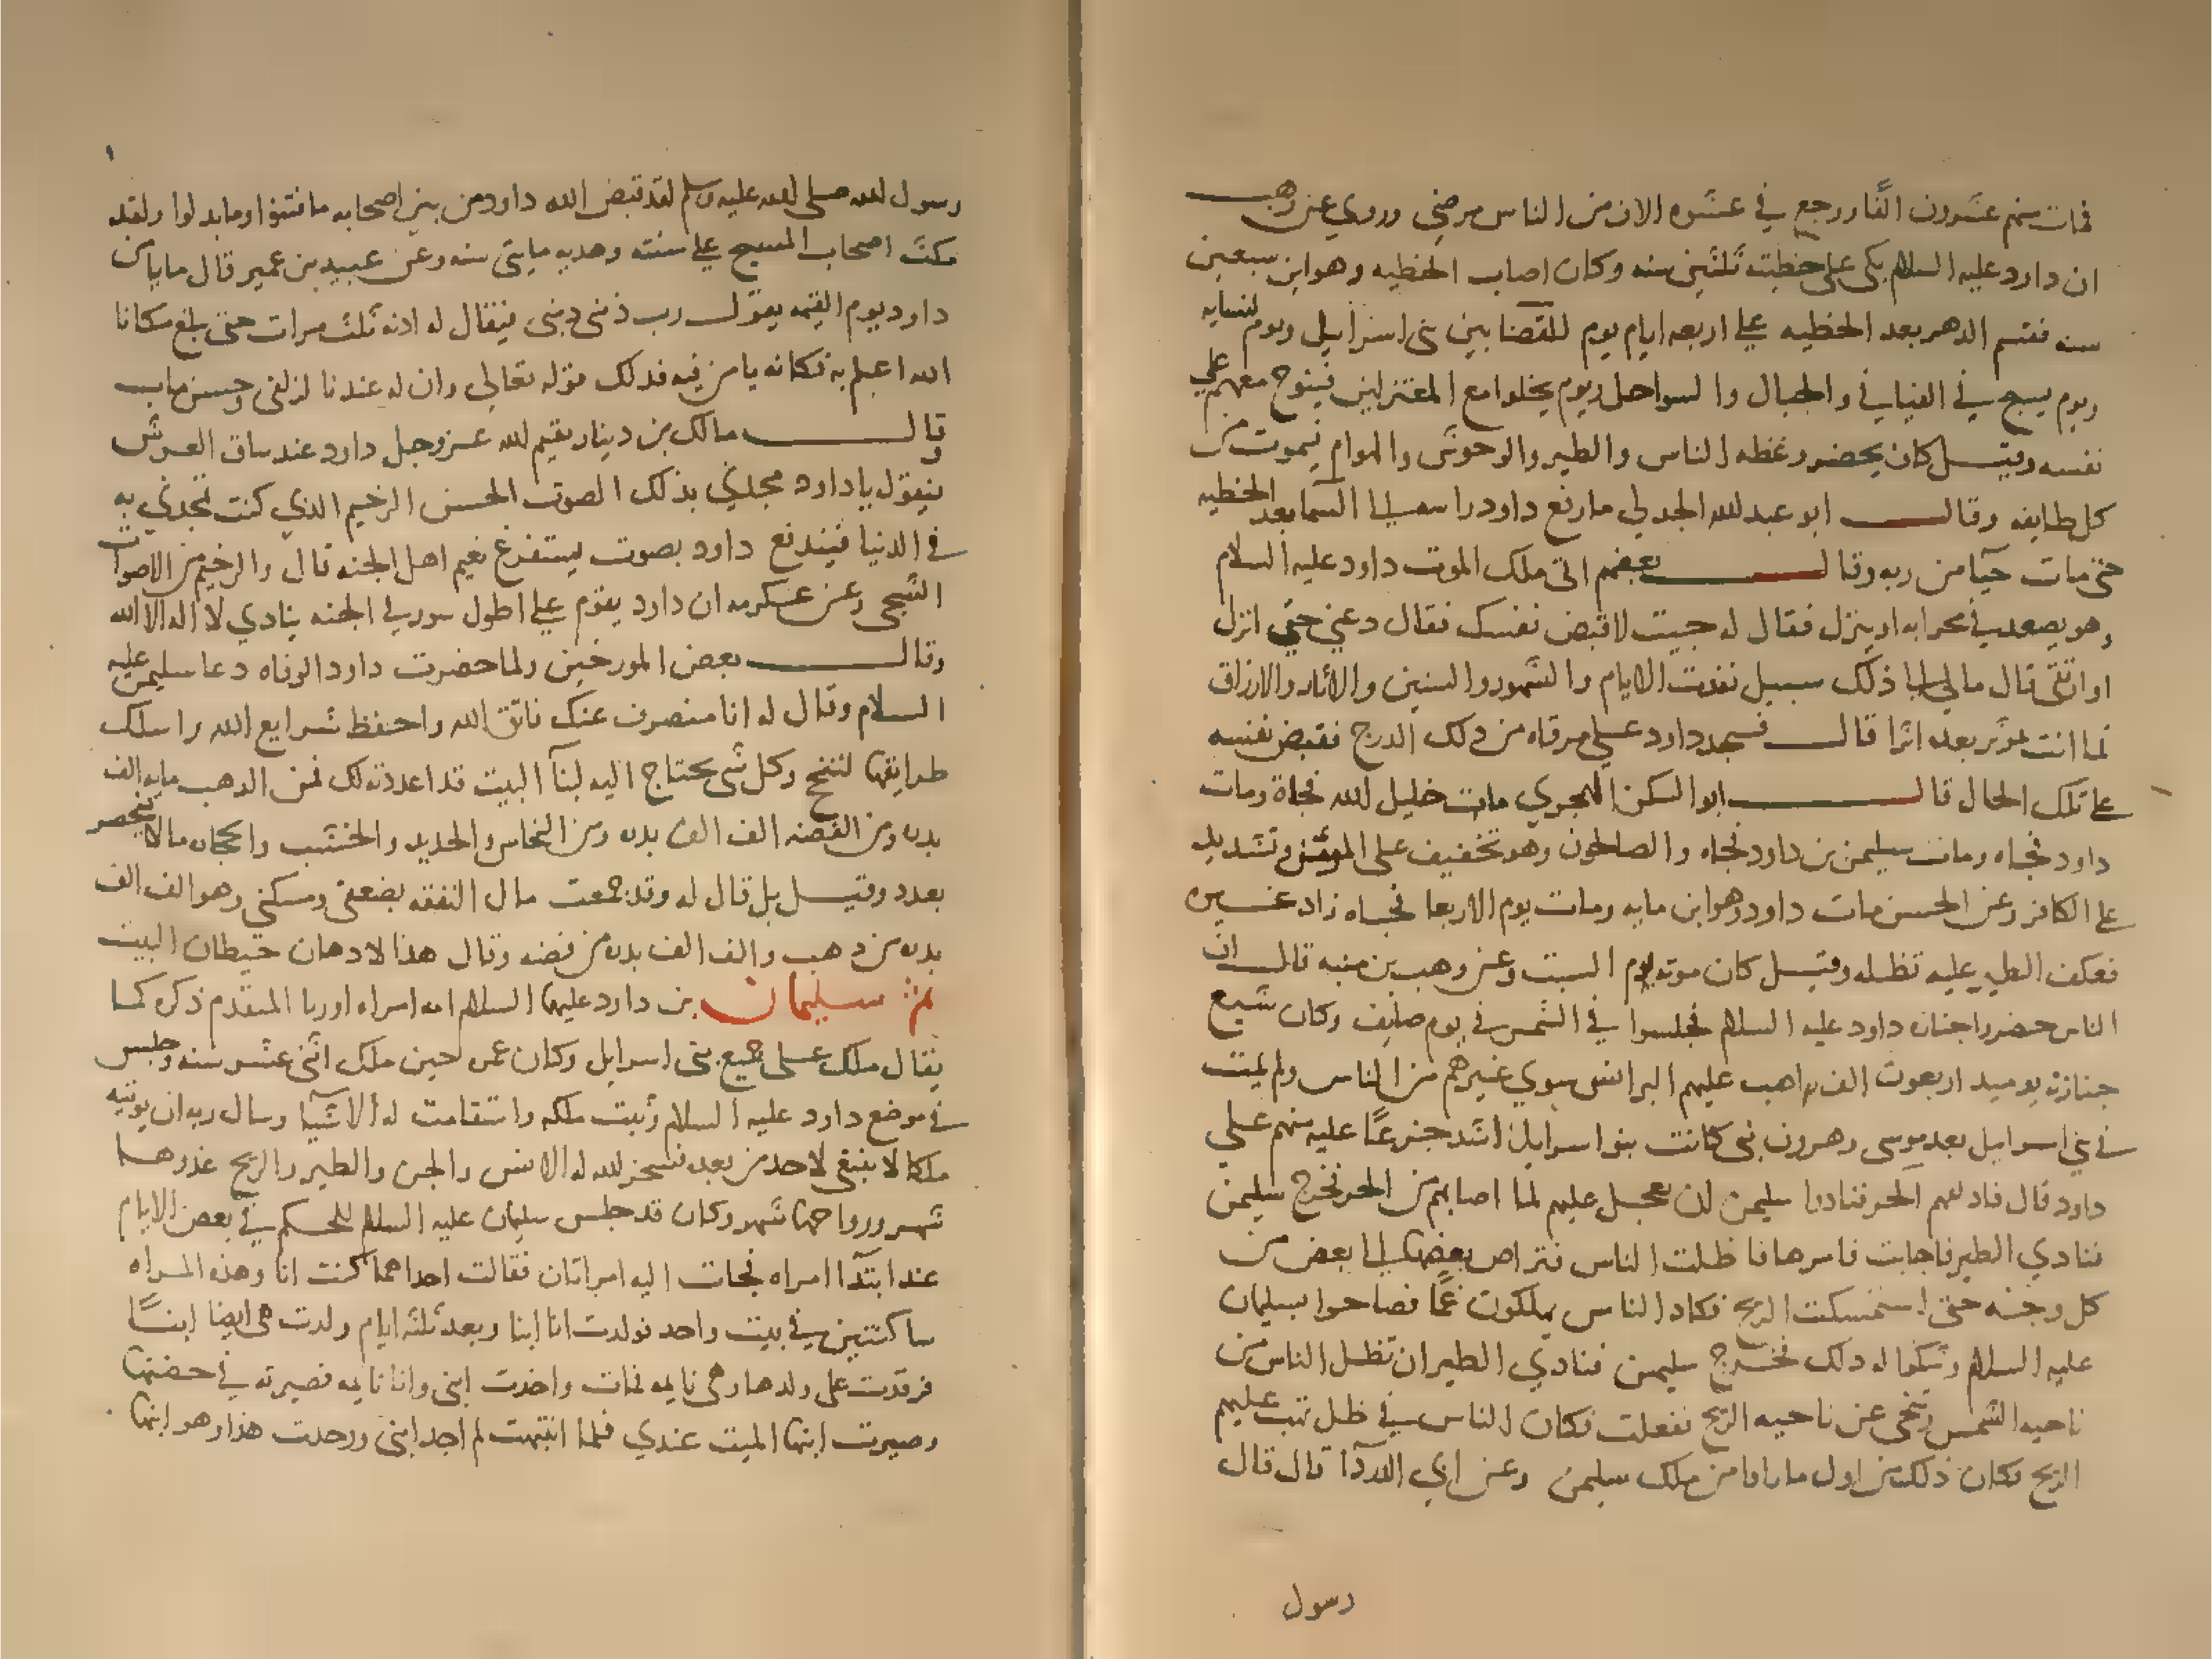 فمات منهم عشرون الفا ورجع في عشره الاف من الناس مرضي وروي عن وهب
ان داود عليه السلام بكى على خطيته ثلثين سنه وكان اصاب الخطيه وهو ابن سبعين
سنه فقسم الدهر بعد الخطيه على اربعه ايام يوم للقضا بين بني اسرايل ويوم لنسايه
ويوم يسبح في الفيافي والجبال والسواحل ويوم يخلوا مع المعتزلين فينوح معهم على
نفسه وقيل كان يحضر وعظه الناس والطير والوحوش والهوام فيموت من
كل طايفه وقال ابو عبد الله الجدلي ما رفع داود راسه الى السما بعد الخطيه
حتى مات حيآ من ربه وقال بعضهم اتى ملك الموت داود عليه السلام
وهو يصعد في محرابه او ينزل فقال له جيت لاقبض نفسك فقال دعني حتى انزل
او ارتقى قال مالي الى ذلك سبيل نفدت الايام والشهور والسنين والاثار والارزاق
فما انت بموثر بعدها اثرا قال فسجد داود على مرقاه من ذلك الدرج فقبض نفسه
على تلك الحال قال ابو السكن الهجري مات خليل الله فجاة ومات
داود فجاه ومات سليمن بن داود فجاه والصالحون وهو تخفيف على المومن وتشديد
على الكافر وعن الحسن مات داود وهو ابن مايه ومات يوم الاربعا فجاه زاد غيره
فعكفت الطير عليه تظله وقيل كان موته يوم السبت وعن وهب بن منبه قال ان
الناس حضروا جنازه داود عليه السلام فجلسوا في الشمس في يوم صايف وكان شيع
جنازته يوميد اربعون الف راهب عليهم البرانس سوي غيرهم من الناس ولم يمت
في بني اسرايل بعد موسى وهرون نبى كانت بنوا اسرايل اشد جزعًا عليه منهم على
داود قال فاداهم الحر فنادوا سليمن ان يعجل عليهم لما اصابهم من الحر فخرج سليمن
فنادي الطير فاجابت فامرها فاظلت الناس فتراص بعضها الى بعض من
كل وجهه حتى استمسكت الريح فكاد الناس يهلكون غمًا فصاحوا بسليمان
عليه السلام وشكوا له ذلك فخرج سليمن فنادي الطير ان تظل الناس من
ناحيه الشمس وتنحى عن ناحيه الريح ففعلت فكان الناس في ظل تهب عليهم
الريح فكان ذلك من اول ما راوا من ملك سليمن وعن ابي الدردآ قال قال
رسول
رسول الله صلى الله عليه وسلم لقد قبض الله داود من بين اصحابه ما فتنوا وما بدلوا ولقد
مكث اصحاب المسيح على سنته وهديه مايتى سنه وعن عبيد بن عمير قال ما يامن
داود يوم القيمه يقول رب ذنبى ذنبى فيقال له ادنه ثلث مرات حتى بلغ مكانا
الله اعلم به فكانه يامن فيه فذلك قوله تعالى وان له عندنا لزلفى وحسن ماب
وقال مالك بن دينار يقيم الله عز وجل داود عند ساق العرش
فيقول يا داود مجدني بذلك الصوت الحسن الرخيم الذي كنت تمجدني به
في الدنيا فيندفع داود بصوت يستفرغ نعيم اهل الجنه قال والرخيم من الاصوات
الشجى وعن عكرمه ان داود يقوم على اطول سور في الجنه ينادي لا اله الا الله
وقال بعض المورخين ولما حضرت داود الوفاه دعا سليمن عليه
السلام وقال له انا منصرف عنك فاتق الله واحفظ شرايع الله واسلك
طرايقها لتنجح وكل شى يحتاج اليه لبنآ البيت قد اعددته لك فمن الذهب مايه الف
بدره ومن الفضه الف الف بدره ومن النحاس والحديد والخشب والحجاره ما لا ينحصر
بعدد وقيل بل قال له وقد جمعت مال النفقه بضعفى ومسكنى وهو الف الف
بدره من ذهب والف الف بدره من فضه وقال هذا لادهان حيطان البيت
ثم سليمان بن داود عليهما السلام امه امراه اوريا المتقدم ذكره كما
يقال ملك على جميع بنى اسرايل وكان عمره حين ملك اثنى عشر سنه وجلس
في موضع داود عليه السلام وثبت ملكه واستقامت له الاشيآ وسال ربه ان يوتيه
ملكا لا ينبغى لاحد من بعده فسخر الله له الانس والجن والطير والريح غدوها
شهر ورواحها شهر وكان قد جلس سليمان عليه السلام للحكم في بعض الايام
عند ابتدآ امراه فجات اليه امراتان فقالت احداهما كنت انا وهذه المراه
ساكنتين في بيت واحد فولدت انا ابنا وبعد ثلثه ايام ولدت هى ايضا ابنًا
فرقدت على ولدها وهى نايمه فمات واخذت ابنى وانا نايمه فصيرته في حضنها
وصيرت ابنها الميت عندي فلما انتبهت لم اجد ابنى ووجدت هذا وهو ابنها